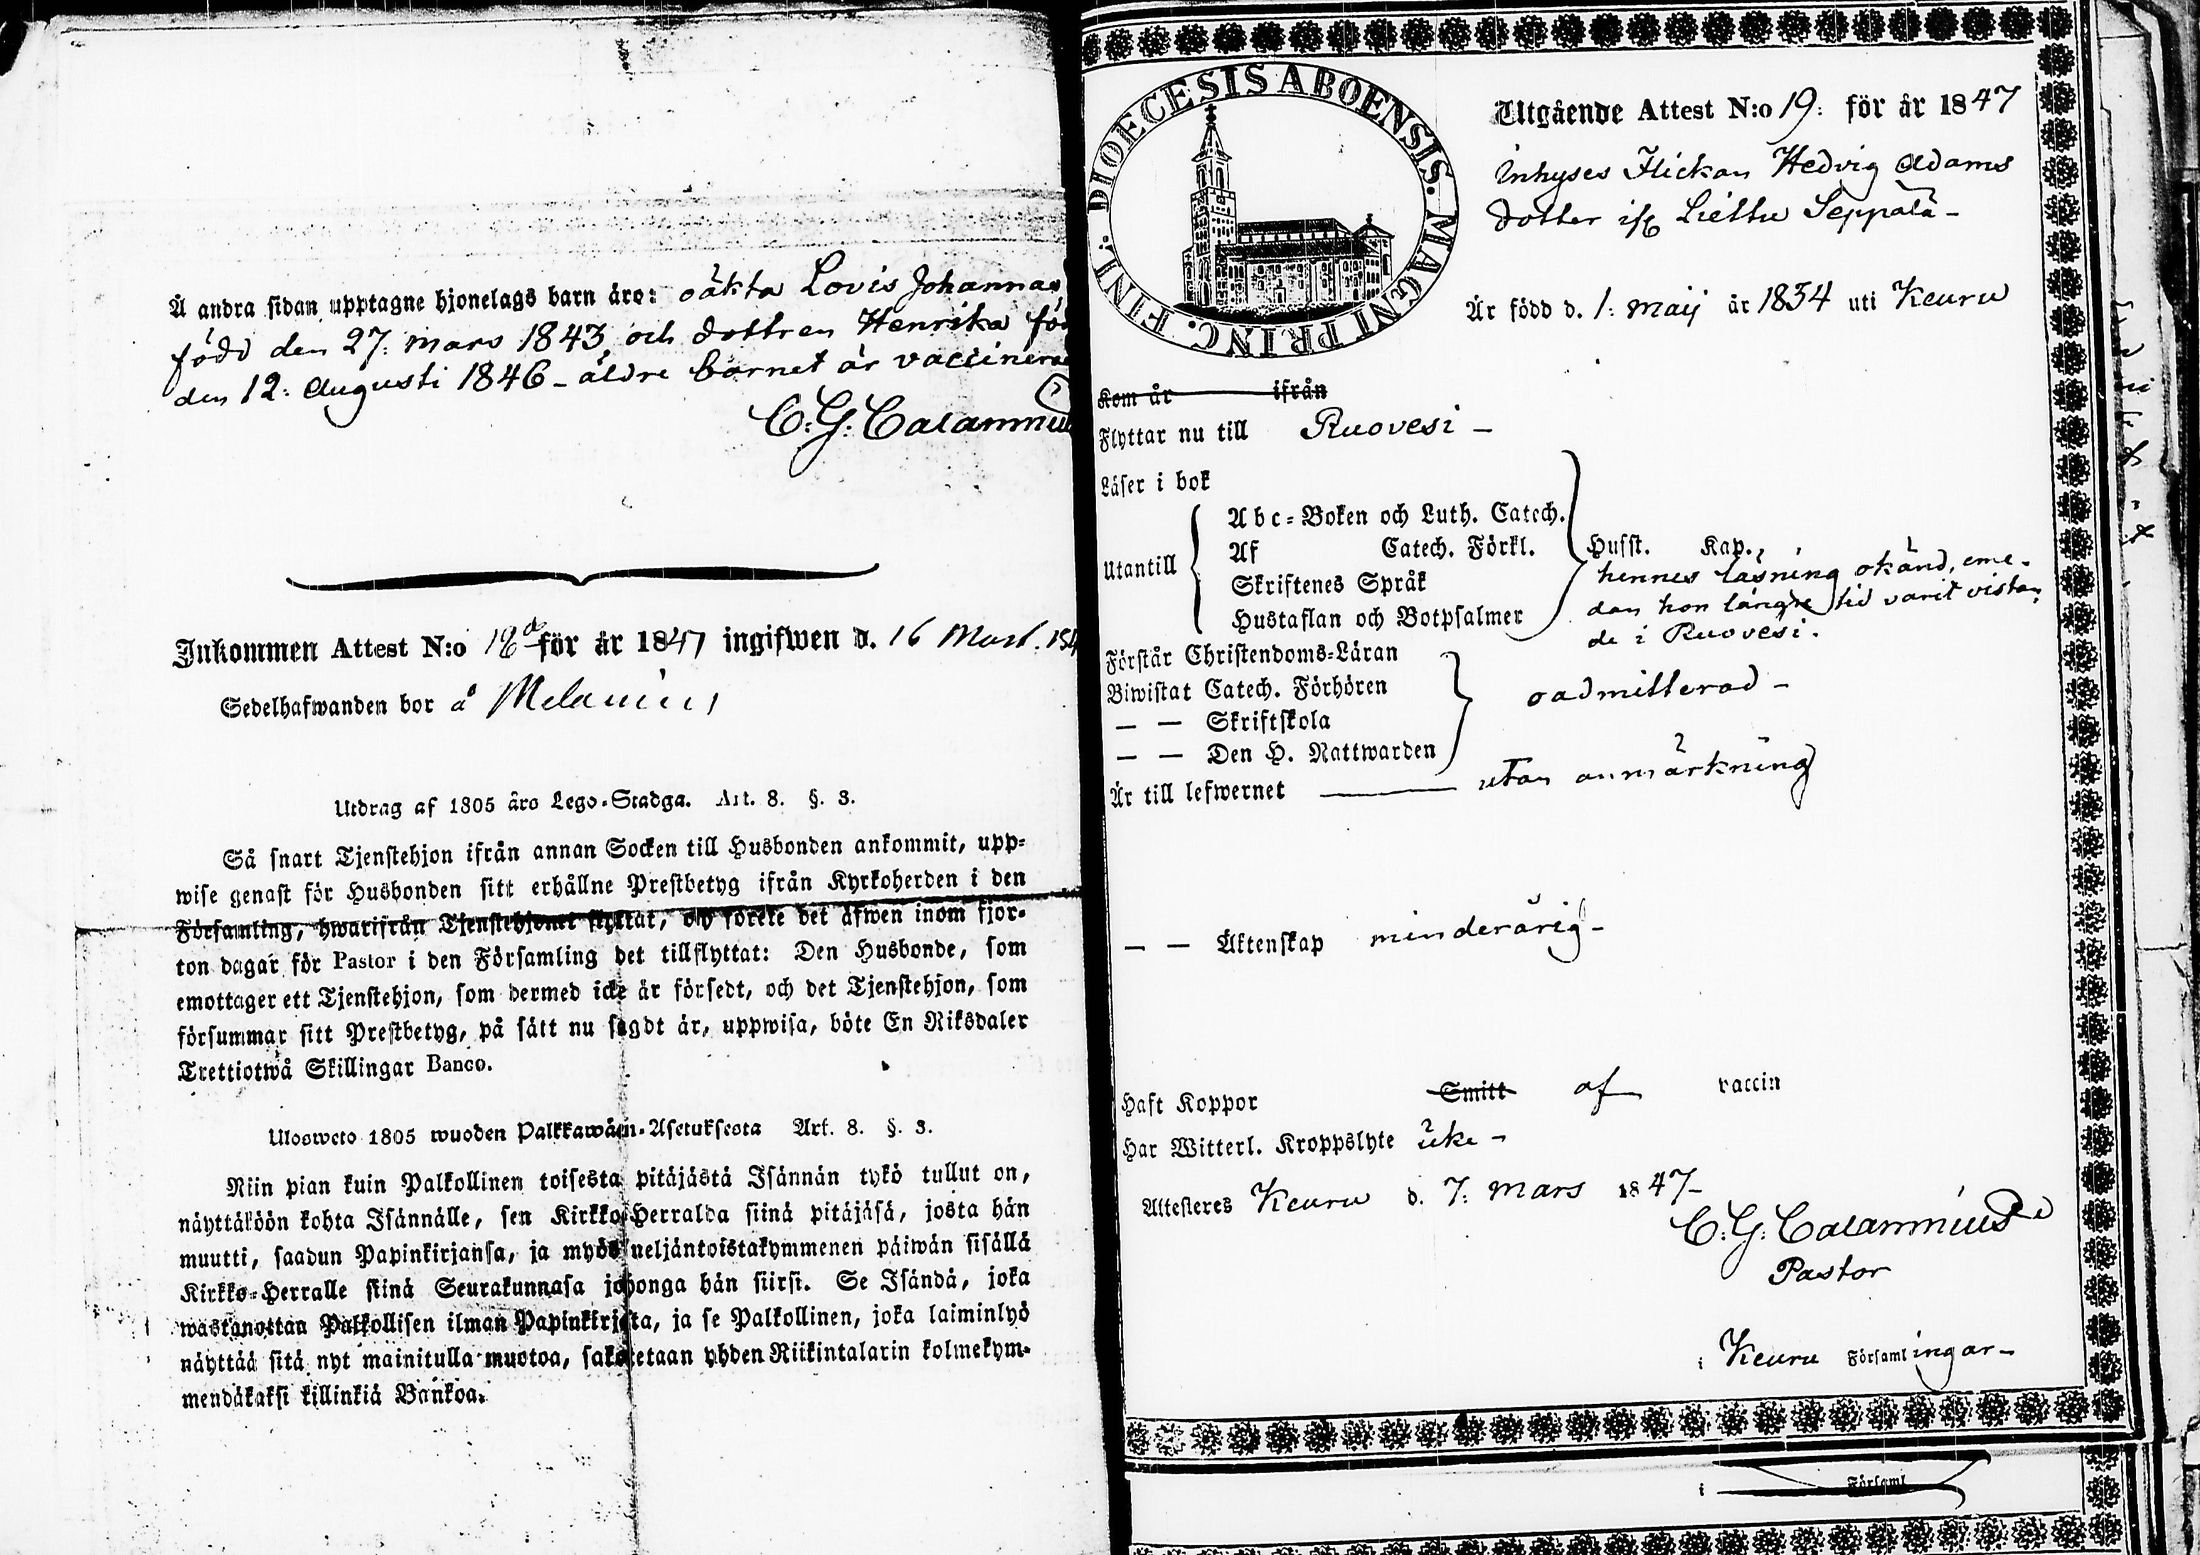 Å andra sidan upptagne hjonelags barn äro: oäkta Lovis Johannas
född den 27: mars 1843 och dottren Henrika fö
den 12: Augusti 1846 – äldre barnet är vaccinera
C. G. Calamnius
Inkommen Attest N:o för år 1847 ingifwen d. 16 Mart. 184
Sedelhafwanden bor å
Utdrag af 1805 års Lego-Stadga. Art. 8. §. 3.
Så snart Tjenstehjon ifrån annan Socken till Husbonden ankommit, upp-
wise genast för Husbonden sitt erhållne Prestbetyg ifrån Kyrkoherden i den
Församling, hwarifrån Tjenstehjonet flyttat, och förete det äfwen inom fjor-
ton dagar för Pastor i den Församling det tillflyttat: Den Husbonde, som
emottager ett Tjenstehjon, som dermed icke är försedt, och det Tjenstehjon, som
försummar sitt Prestbetyg, på sätt nu sagdt är, uppwisa, böte En Riksdaler
Trettiotwå Skillingar Banco.
Ulosweto 1805 wuoden Palkkawäen-Asetuksesta Art. 8. §. 3.
Niin pian kuin Palkollinen toisesta pitäjästä Isännän tykö tullut on,
näyttäköön kohta Isännälle, sen Kirkko-Herralda siinä pitäjäsä, josta hän
muutti, saadun Papinkirjansa, ja myös neljäntoistakymmenen päiwän sisällä
Kirkko-Herralle siinä Seurakunnasa johonga hän siirsi. Se Isändä, joka
wastanottaa Palkollisen ilman Papinkirjata, ja se Palkollinen, joka laiminlyö
näyttää sitä nyt mainitulla muotoa, sakotetaan yhden Riikintalarin kolmekym-
mendäkaksi killinkiä Bankoa.
DIOECESIS ABOENSIS. MAGNI PRINC. FINL.
Utgående Attest N:o 19: för år 1847
Inhyses Flickan Hedvig Adams
dotter ifr Liettu Seppälä –
Är född d. 1: maij år 1834 uti Keuru
Kom år ifrån
Flyttar nu till Ruovesi –
Läser i bok
Utantill
Abc-Boken och Luth. Catech.
Af Catech. Förkl.
Skriftenes Språk
Hustaflan och Botpsalmer
Husst. Kap.
hennes läsning okänd, eme-
dan hon längre tid varit vistan
de i Ruovesi.
Förstår Christendoms-Läran
Biwistat Catech. Förhören
— — Skriftskola
— — Den H. Nattwarden
oadmitterad –
Är till lefwernet utan anmärkning
— — Äktenskap minderårig –
Haft Koppor Smitt af vaccin
Har Witterl. Kroppslyte icke –
Attesteres Keuru d. 7: mars 1847 –
C. G. Calamnius
Pastor
i Keuru Församlingar –
i Församl